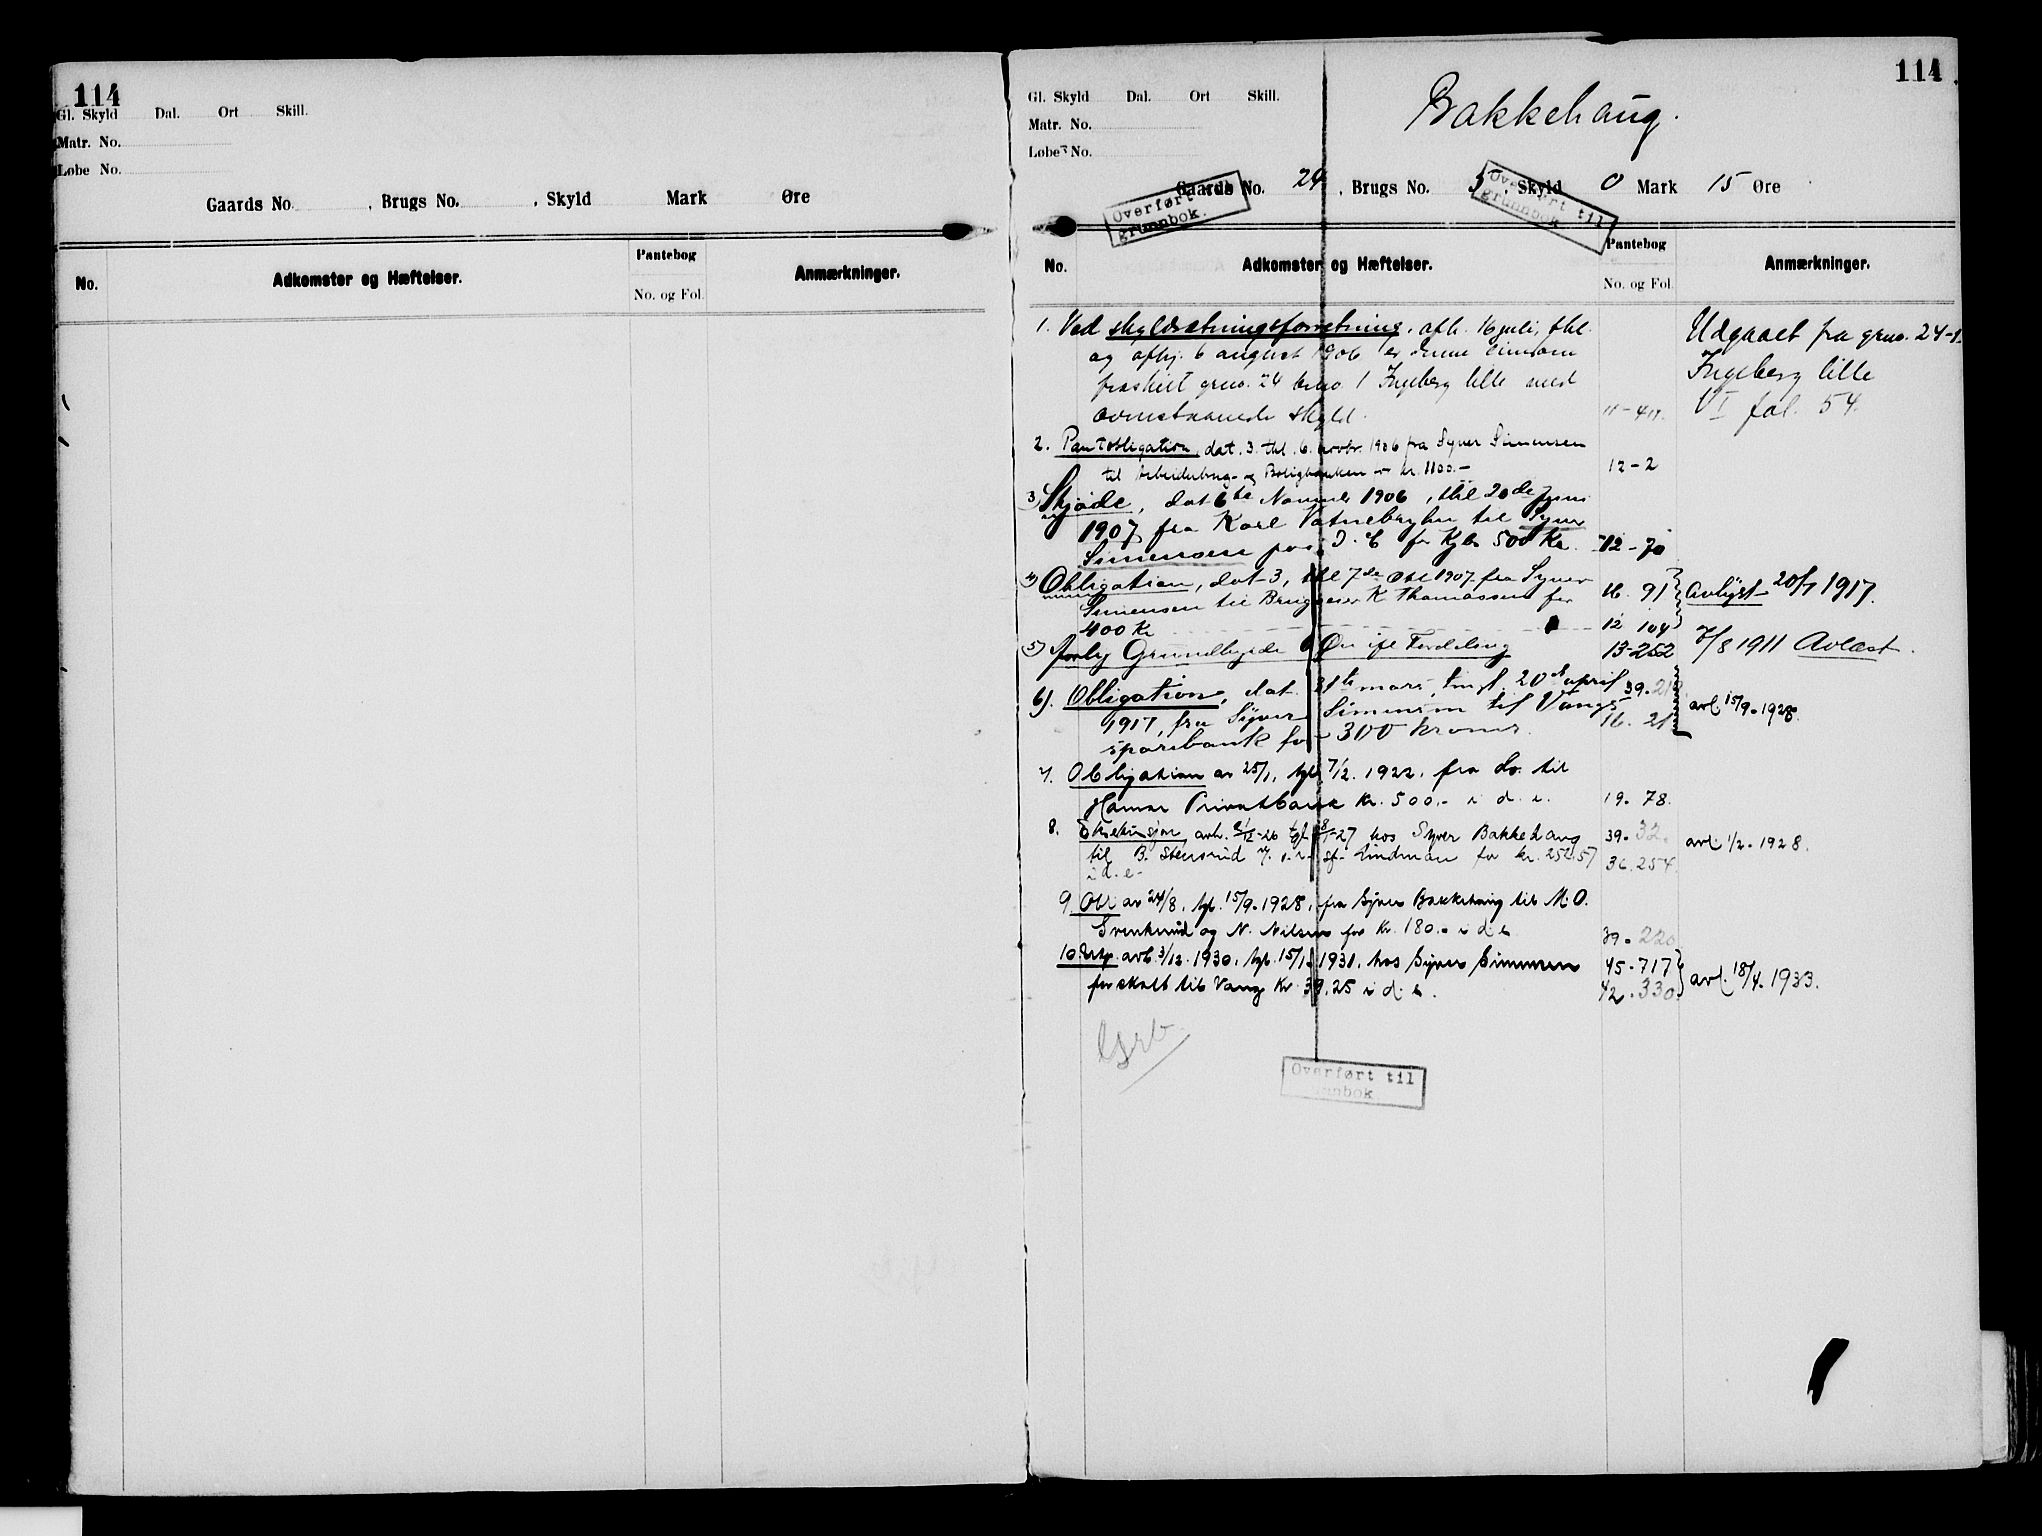 114
Gl. Skyld Dal. Ort Skill.
Matr. No.
Løbe No.
Gaards No. , Brugs No. , Skyld Mark Øre
No.
Adkomster og Hæftelser.
Pantebog
No. og Fol.
Anmærkninger.
114
Gl. Skyld Dal. Ort Skill.
Matr. No.
Løbe No.
Bakkehaug.
Gaards No. 24 , Brugs No. 5 , Skyld 0 Mark 15 Øre
Overført til
grunnbok.
Overført til
grunnbok
No.
Adkomster og Hæftelser.
Pantebog
No. og Fol.
Anmærkninger.
1. Ved skyldsætningsforretning, afh. 16 juli, thl.
og afhj. 6 august 1906 er denne eiendom
fraskilt grno. 24 brno. 1 Ingeberg lille med
ovenstaaende skyld. 11-411.
Udgaaet fra grno. 24-1.
Ingeberg lille
VI fol. 54.
2. Pantobligation, dat. 3. thl. 6. novbr. 1906 fra Syver Simensen
til Arbeiderbrug- og Boligbanken kr. 1100.- 12-2
3) Skjøde, dat 6te November 1906, thl 20de Juni
1907 fra Karl til Syver
Simensen paa D. E for Kjbs 500 Kr. 12-70
4) Obligation, dat 3, thl 7de Okt 1907 fra Syver
Simensen til Brugseier K Thomassen for
400 Kr
16. 91
12 104
Avlyst 20/7 1917.
5) Grundbyrde 6 Øre ifl Fordeling 13-252
7/8 1911 Avløst.
6). Obligation, dat. 31te mars, tingl. 20de april
1917, fra Syver Simensen til Vangs
sparebank for 300 kroner.
39.
16. 21
avl. 15/9-1928.
7. Obligation av 25/1, tgl. 7/2. 1922, fra do. til
Hamar Privatbank kr. 500.- i d. e. 19. 78.
8. Eksekusjon avh. 21/12-26 tgl. 8/1-27 hos Syver Bakkehaug
til B. Stensrud sf. Lindman for kr. 252.57
i d. e.
39. 32.
36. 254.
avl. 1/2-1928.
9. Obl av 24/8, tgl. 15/9-1928, fra Syver Bakkehaug til M. O.
Svenkerud og N. Nilsen for Kr. 180.- i d. e. 39. 220
10. Utp. avh. 3/12. 1930, tgl. 15/1 1931, hos Syver Simensen
for skatt til Vang Kr. 39.25 i d. e.
45-717
42. 330.
avl. 18/4-1933.
Overført til
grunnbok